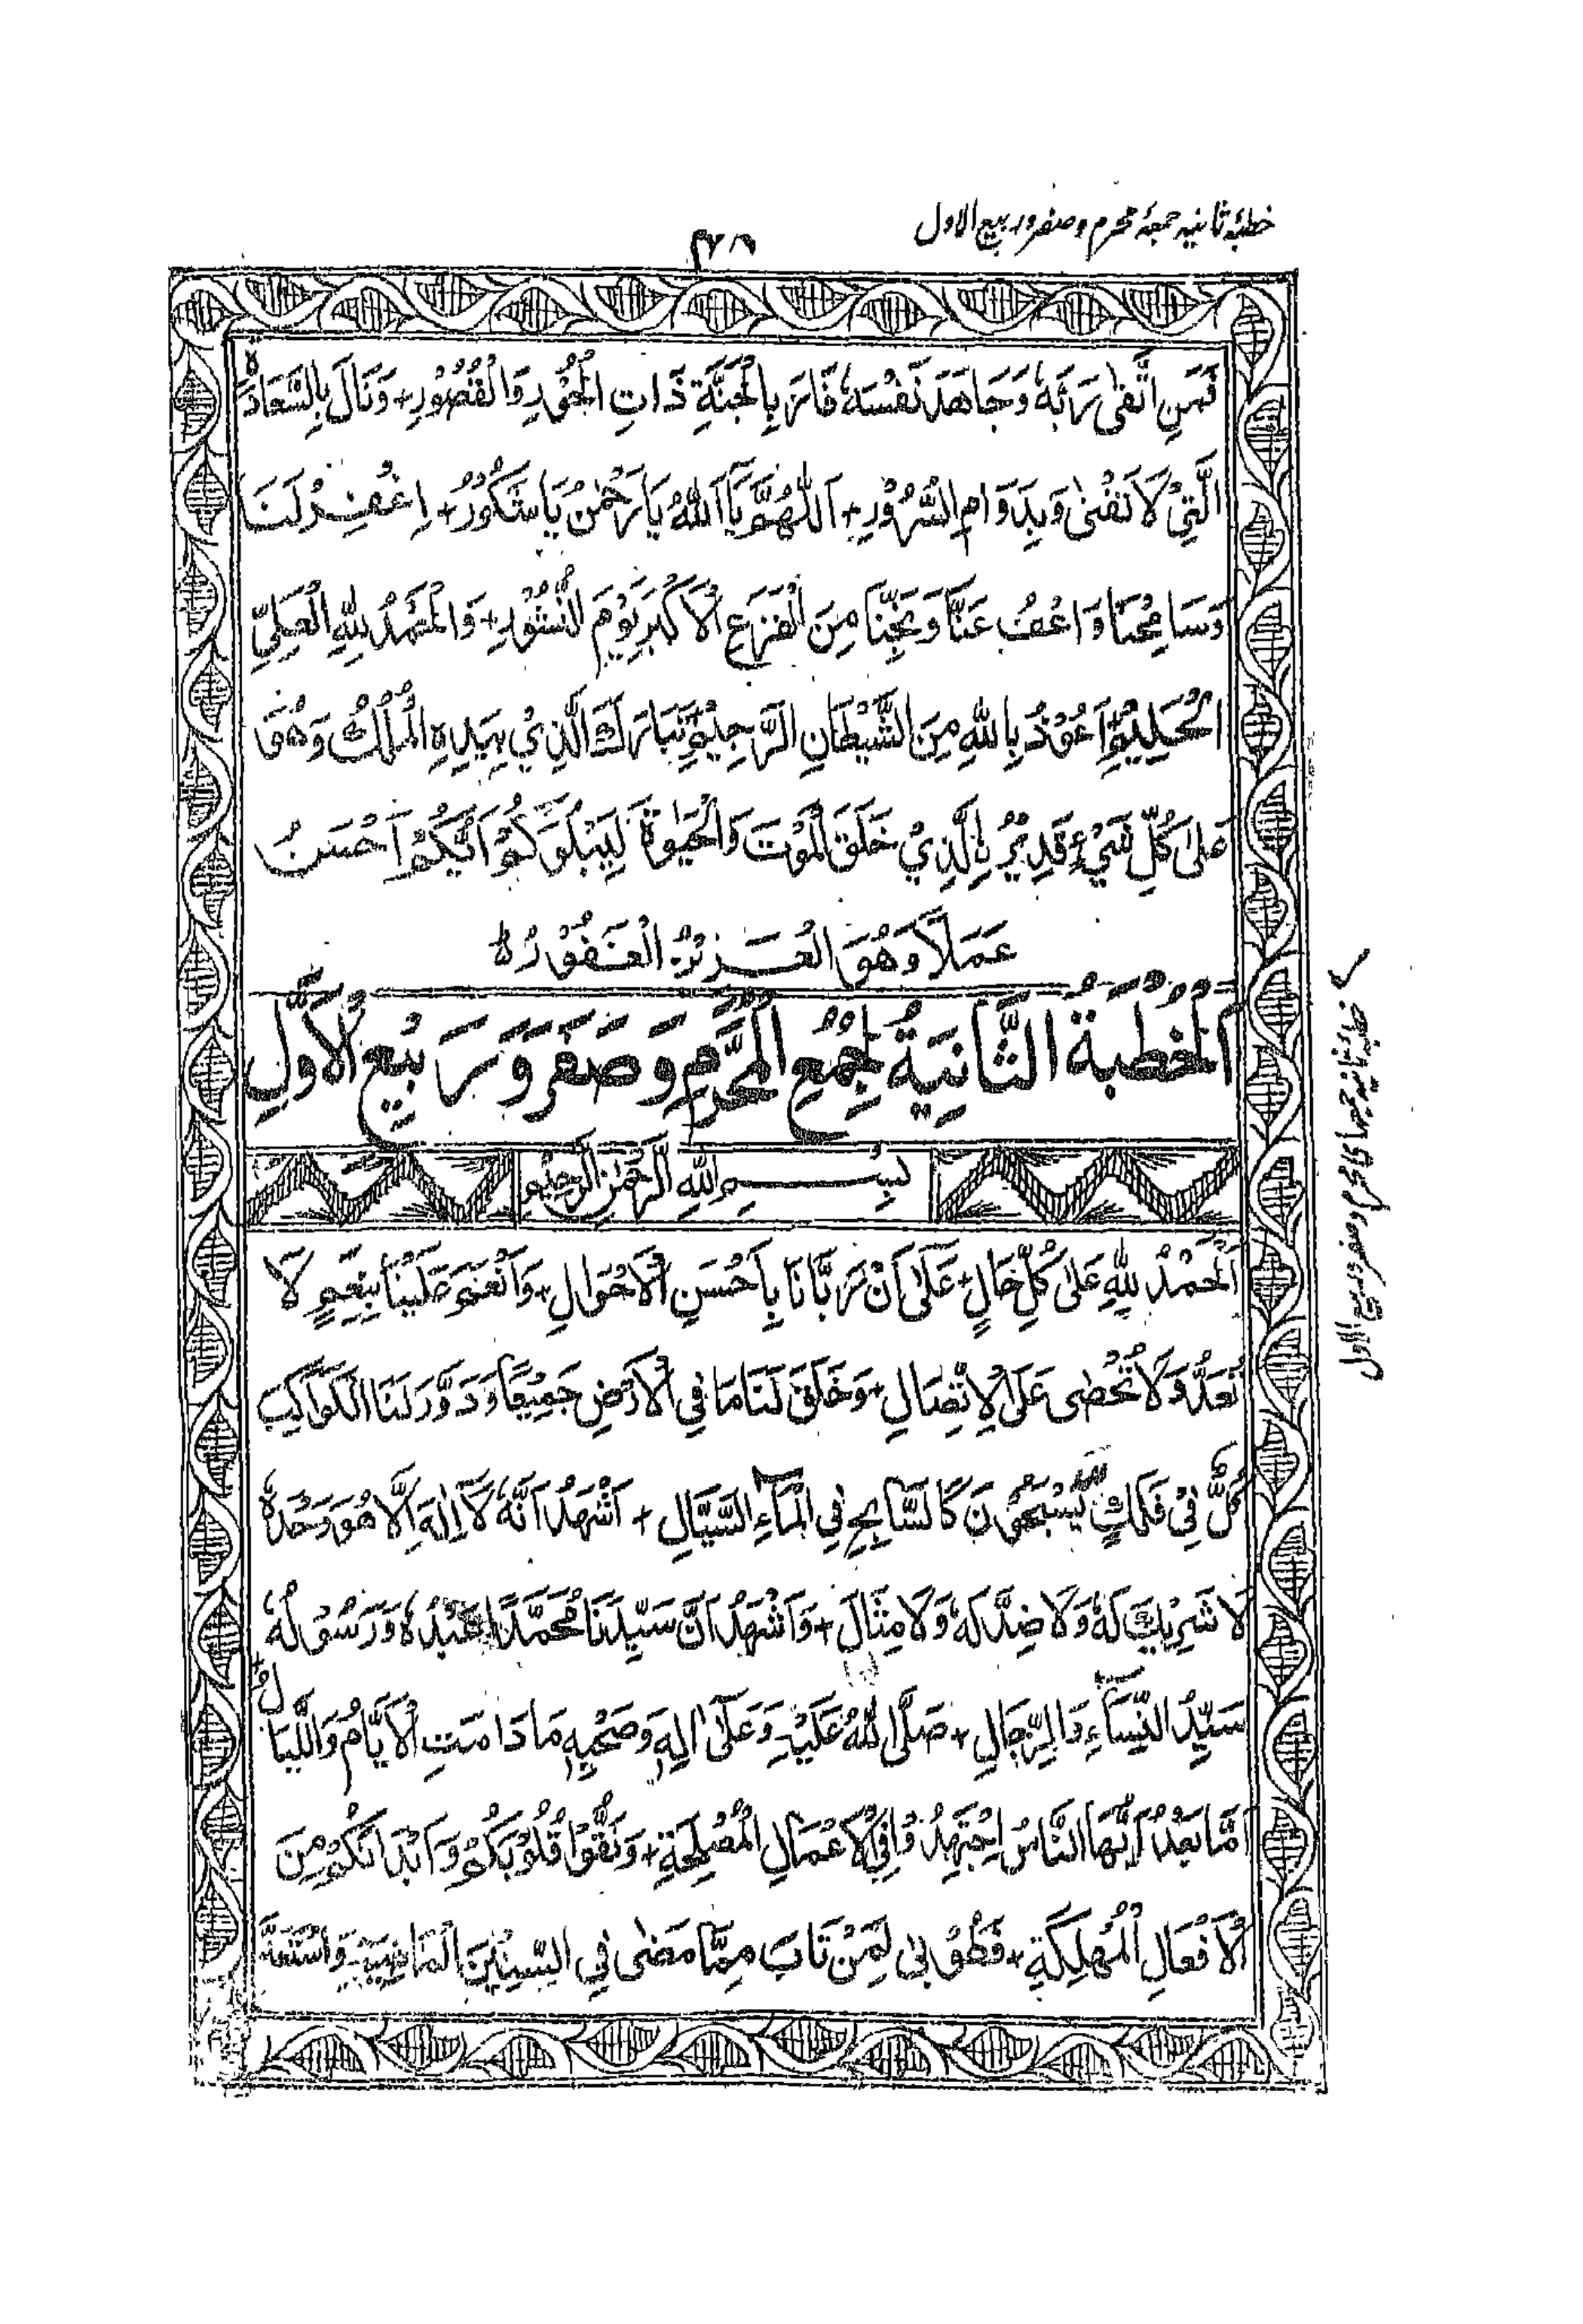 خطبۂ ثانیہ جمعۂ محرم و صفر و ربیع الاول
فَمَنِ اتَّقٰى رَبَّهٗ وَجَاهَدَ نَفْسَهٗ فَازَ بِالْجَنَّةِ ذَاتِ الْحُوْرِ وَالْقُصُوْرِ+ وَنَالَ بِالسَّعَادَةِ
الَّتِيْ لَا تَفْنٰى وَبِدَوَامِ السُّرُوْرِ+ اَللّٰهُمَّ يَا اَللّٰهُ يَا رَحْمٰنُ يَا شَكُوْرُ+ اِغْفِرْ لَنَا
وَسَامِحْنَا وَاعْفُ عَنَّا وَنَجِّنَا مِنَ الْفَزَعِ الْاَكْبَرِ يَوْمَ النُّشُوْرِ+ وَالْحَمْدُ لِلّٰهِ الْعَلِيِّ
الْحَلِيْمِ اَعُوْذُ بِاللّٰهِ مِنَ الشَّيْطَانِ الرَّجِيْمِ تَبَارَكَ الَّذِيْ بِيَدِهِ الْمُلْكُ وَهُوَ
عَلٰى كُلِّ شَيْءٍ قَدِيْرُ نِالَّذِيْ خَلَقَ الْمَوْتَ وَالْحَيٰوةَ لِيَبْلُوَكُمْ اَيُّكُمْ اَحْسَنُ
عَمَلًا وَهُوَ الْعَزِيْزُ الْغَفُوْرُ ط
اَلْخُطْبَةُ الثَّانِيَةُ لِجُمَعِ الْمُحَرَّمِ وَصَفَرَ وَرَبِيْعِ الْاَوَّلِ
بِسْمِ اللّٰهِ الرَّحْمٰنِ الرَّحِيْمِ
اَلْحَمْدُ لِلّٰهِ عَلٰى كُلِّ حَالٍ+ عَلٰى اَنْ رَبَّانَا بِاَحْسَنِ الْاَحْوَالِ+ وَاَنْعَمَ عَلَيْنَا بِنِعَمٍ لَا
تُعَدُّ وَلَا تُحْصٰى عَلَى الْاِتِّصَالِ+ وَخَلَقَ لَنَا مَا فِي الْاَرْضِ جَمِيْعًا وَدَوَّرَ لَنَا الْكَوَاكِبَ
كُلٌّ فِيْ فَلَكٍ يَّسْبَحُوْنَ كَالسَّابِحِ فِي الْمَاءِ السَّيَّالِ+ اَشْهَدُ اَنَّهٗ لَا اِلٰهَ اِلَّا هُوَ وَحْدَهٗ
لَا شَرِيْكَ لَهٗ وَلَا ضِدَّ لَهٗ وَلَا مِثَالَ+ وَاَشْهَدُ اَنَّ سَيِّدَنَا مُحَمَّدًا عَبْدُهٗ وَرَسُوْلُهٗ
سَيِّدُ النِّسَاءِ وَالرِّجَالِ+ صَلَّى اللّٰهُ عَلَيْهِ وَعَلٰى اٰلِهٖ وَصَحْبِهٖ مَا دَامَتِ الْاَيَّامُ وَاللَّيَالِيْ+
اَمَّا بَعْدُ اَيُّهَا النَّاسُ اِجْتَهِدُوْا فِي الْاَعْمَالِ الْمُصْلِحَةِ+ وَنَقُّوْا قُلُوْبَكُمْ وَاَبْدَانَكُمْ مِنَ
الْاَفْعَالِ الْمُهْلِكَةِ+ فَطُوْبٰى لِمَنْ تَابَ مِمَّا مَضٰى فِي السِّنِيْنَ الْمَاضِيَةِ
خطبۂ ثانیہ محرم و صفر و ربیع الاول